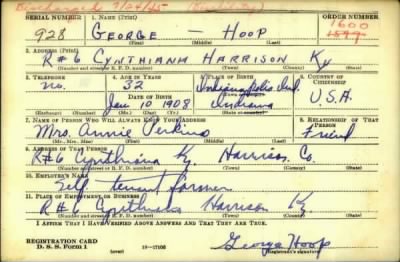 Discharged 7/24/45 (Disability)
SERIAL NUMBER 1. NAME (Print) ORDER NUMBER
928 GEORGE — HOOP 1600
(First) (Middle) (Last) 1599
2. ADDRESS (Print)
R#6 CYNTHIANA HARRISON Ky
(Number and street or R. F. D. number) (Town) (County) (State)
3. TELEPHONE 4. AGE IN YEARS 5. PLACE OF BIRTH 6. COUNTRY OF CITIZENSHIP
no. 32 Indianapolis Ind.
DATE OF BIRTH
Jan 10 1908 Indiana U.S.A.
(Exchange) (Number) (Mo.) (Day) (Yr.) (State or country)
7. NAME OF PERSON WHO WILL ALWAYS KNOW YOUR ADDRESS 8. RELATIONSHIP OF THAT PERSON
Mrs. Annie Perkins Friend
(Mr., Mrs., Miss) (First) (Middle) (Last)
9. ADDRESS OF THAT PERSON
R#6 Cynthiana Ky. Harrison Co.
(Number and street or R. F. D. number) (Town) (County) (State)
10. EMPLOYER'S NAME
Self tenant farmer
11. PLACE OF EMPLOYMENT OR BUSINESS
R#6 Cynthiana Harrison Ky.
(Number and street or R. F. D. number) (Town) (County) (State)
I AFFIRM THAT I HAVE VERIFIED ABOVE ANSWERS AND THAT THEY ARE TRUE.
REGISTRATION CARD
D. S. S. Form 1 (over) 16—17105 George Hoop
(Registrant's signature)